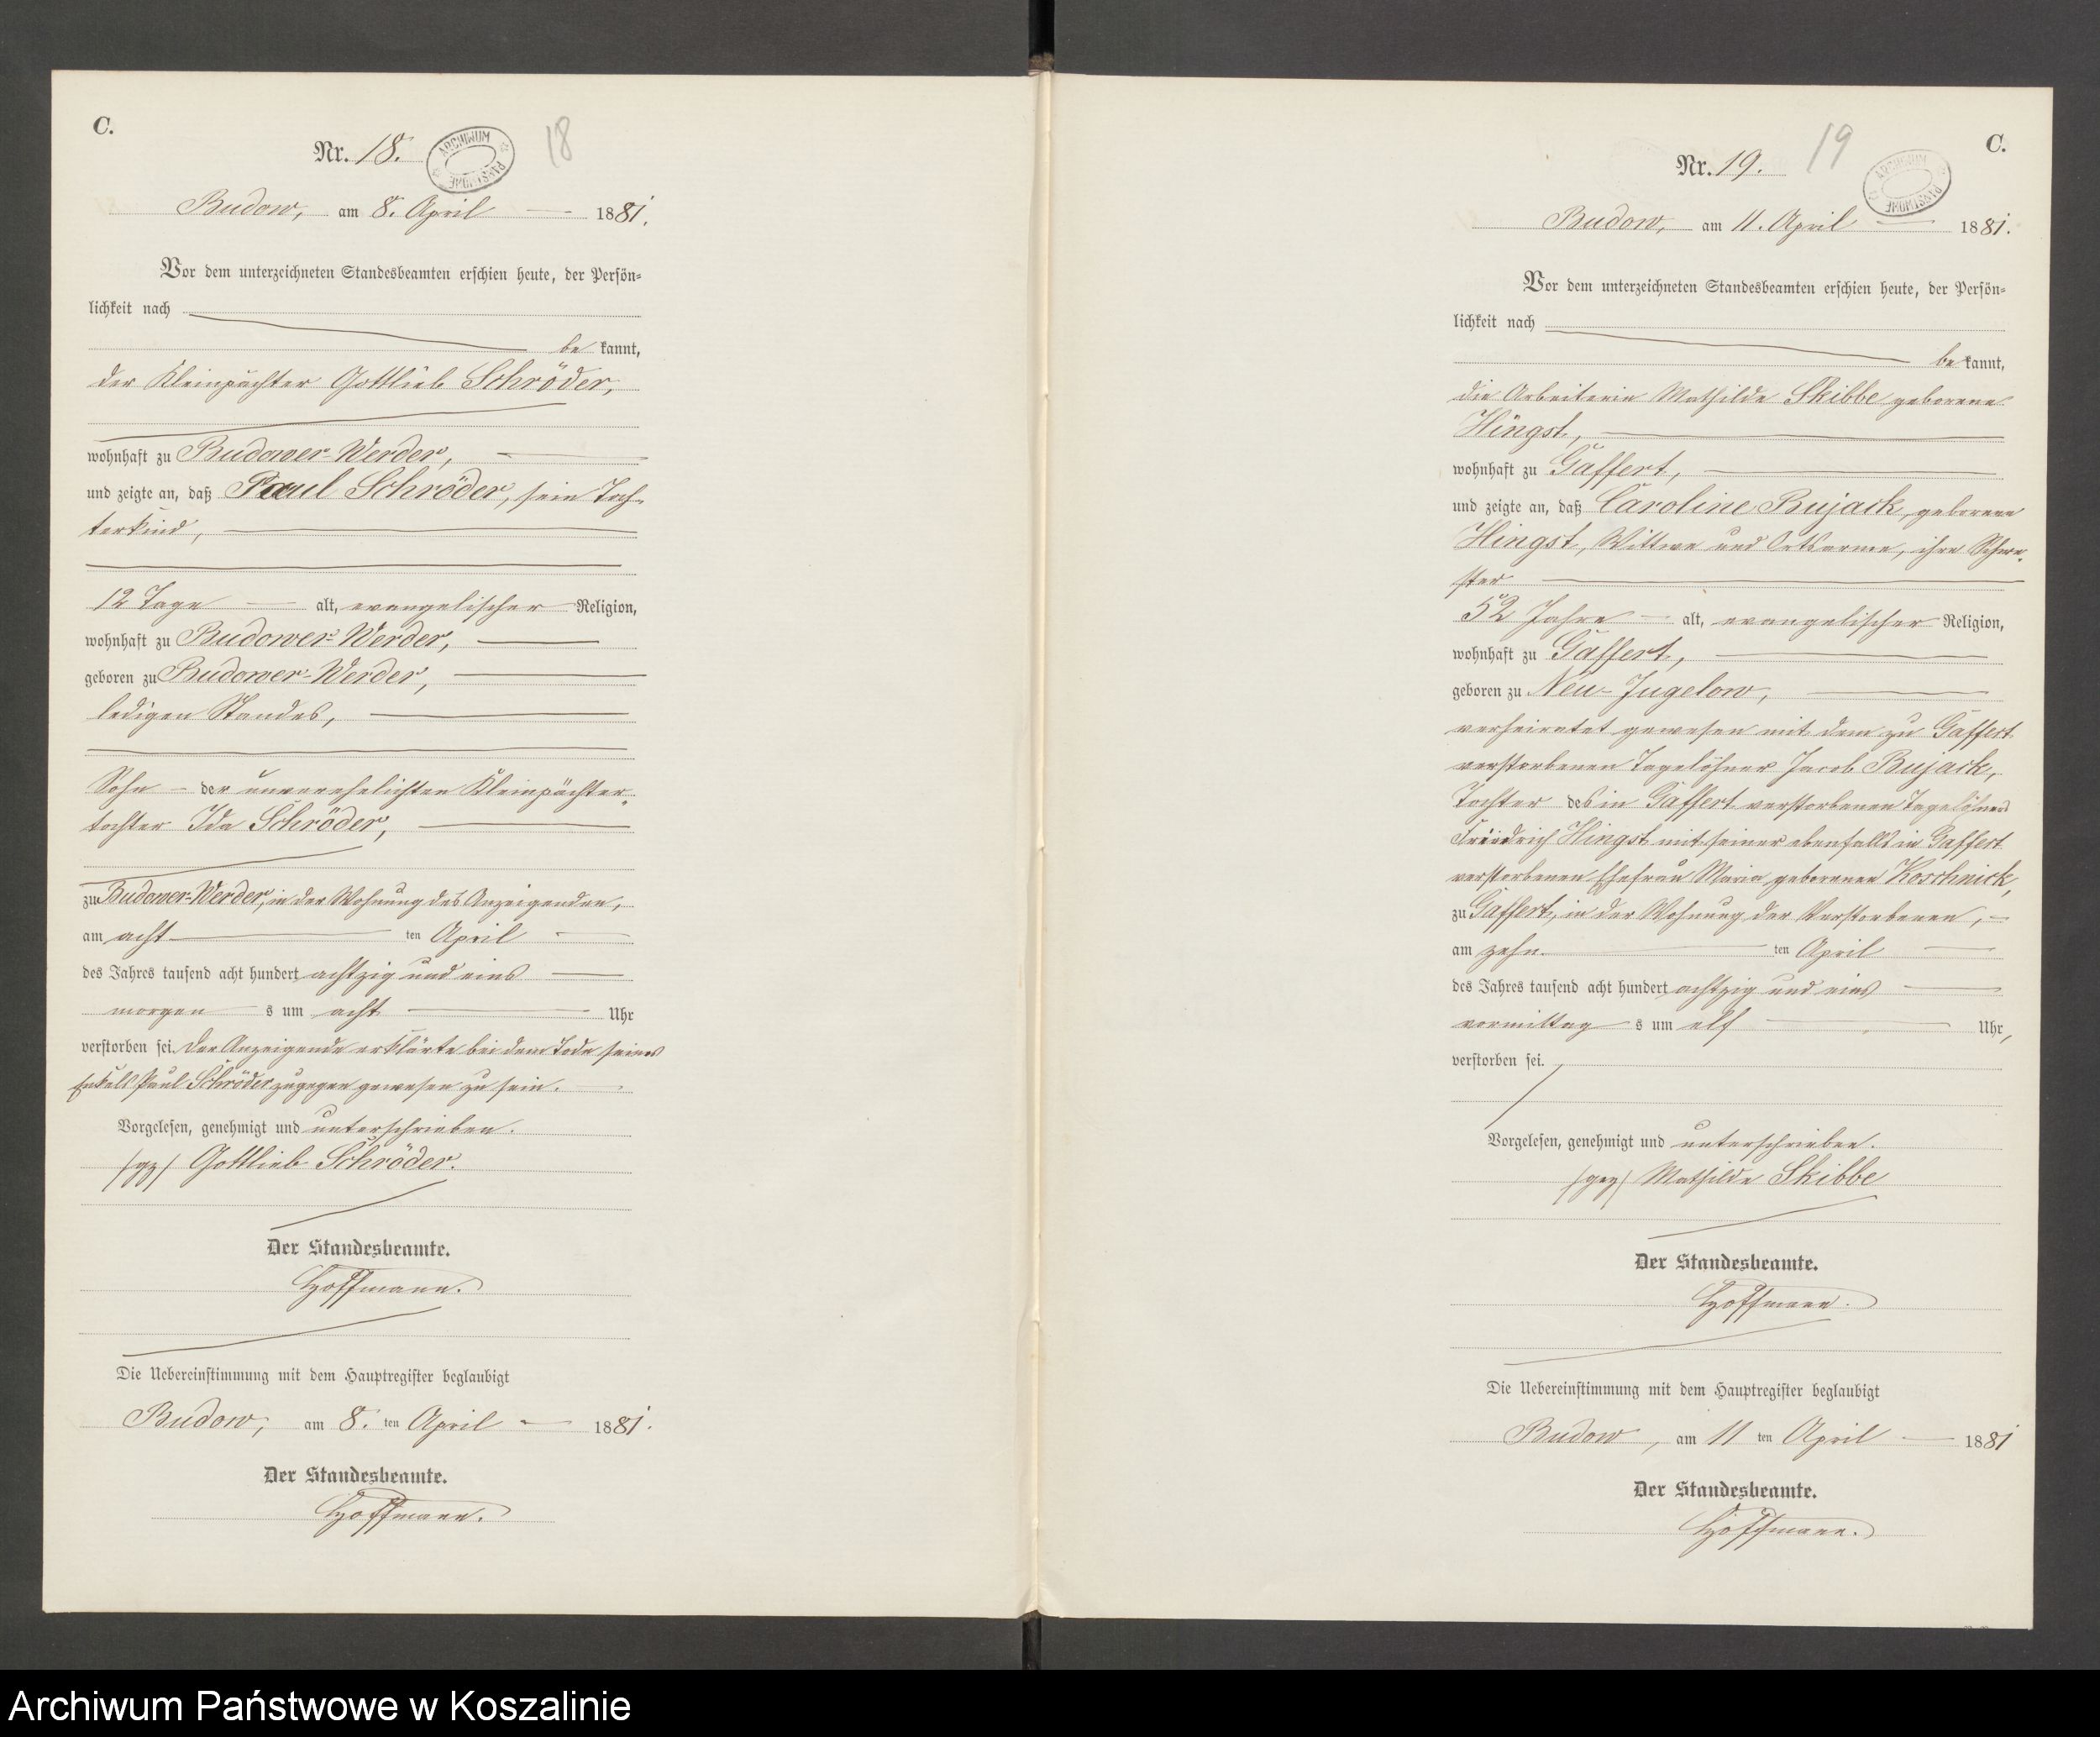 C.
Nr. 18.
ARCHIWUM PAŃSTWOWE
18
Budow, am 8. April 1881.
Vor dem unterzeichneten Standesbeamten erschien heute, der Persön-
lichkeit nach
be kannt,
der Kleinpächter Gottlieb Schröder,
wohnhaft zu Budower-Werder,
und zeigte an, daß Paul Schröder, sein Toch-
terkind,
12 Tage alt, evangelischer Religion,
wohnhaft zu Budower-Werder,
geboren zu Budower-Werder,
ledigen Standes,
Sohn der unverehelichten Kleinpächter-
tochter Ida Schröder,
zu Budower-Werder, in der Wohnung des Anzeigenden,
am acht ten April
des Jahres tausend acht hundert achtzig und eins
morgen s um acht Uhr
verstorben sei. Der Anzeigende erklärte bei dem Tode seines
Enkels Paul Schröder zugegen gewesen zu sein.
Vorgelesen, genehmigt und unterschrieben.
/gz/ Gottlieb Schröder.
Der Standesbeamte.
Hoffmann.
Die Uebereinstimmung mit dem Hauptregister beglaubigt
Budow, am 8. ten April 1881.
Der Standesbeamte.
Hoffmann.
C.
Nr. 19.
19
ARCHIWUM PAŃSTWOWE
Budow, am 11. April 1881.
Vor dem unterzeichneten Standesbeamten erschien heute, der Persön-
lichkeit nach
be kannt,
die Arbeiterin Mathilde Skibbe geborene
Hingst,
wohnhaft zu Gaffert,
und zeigte an, daß Caroline Bujack, geborene
Hingst, Wittwe und Ortsarme, ihre Schwe-
ster
52 Jahre alt, evangelischer Religion,
wohnhaft zu Gaffert,
geboren zu Neu-Jugelow,
verheiratet gewesen mit dem zu Gaffert
verstorbenen Tagelöhner Jacob Bujack,
Tochter des in Gaffert verstorbenen Tagelöhners
Friedrich Hingst mit seiner ebenfalls in Gaffert
verstorbenen Ehefrau Maria geborenen Koschnick,
zu Gaffert, in der Wohnung der Verstorbenen,
am zehn ten April
des Jahres tausend acht hundert achtzig und eins
vormittag s um elf Uhr,
verstorben sei.
Vorgelesen, genehmigt und unterschrieben.
/gez/ Mathilde Skibbe
Der Standesbeamte.
Hoffmann.
Die Uebereinstimmung mit dem Hauptregister beglaubigt
Budow, am 11 ten April 1881
Der Standesbeamte.
Hoffmann.
Archiwum Państwowe w Koszalinie